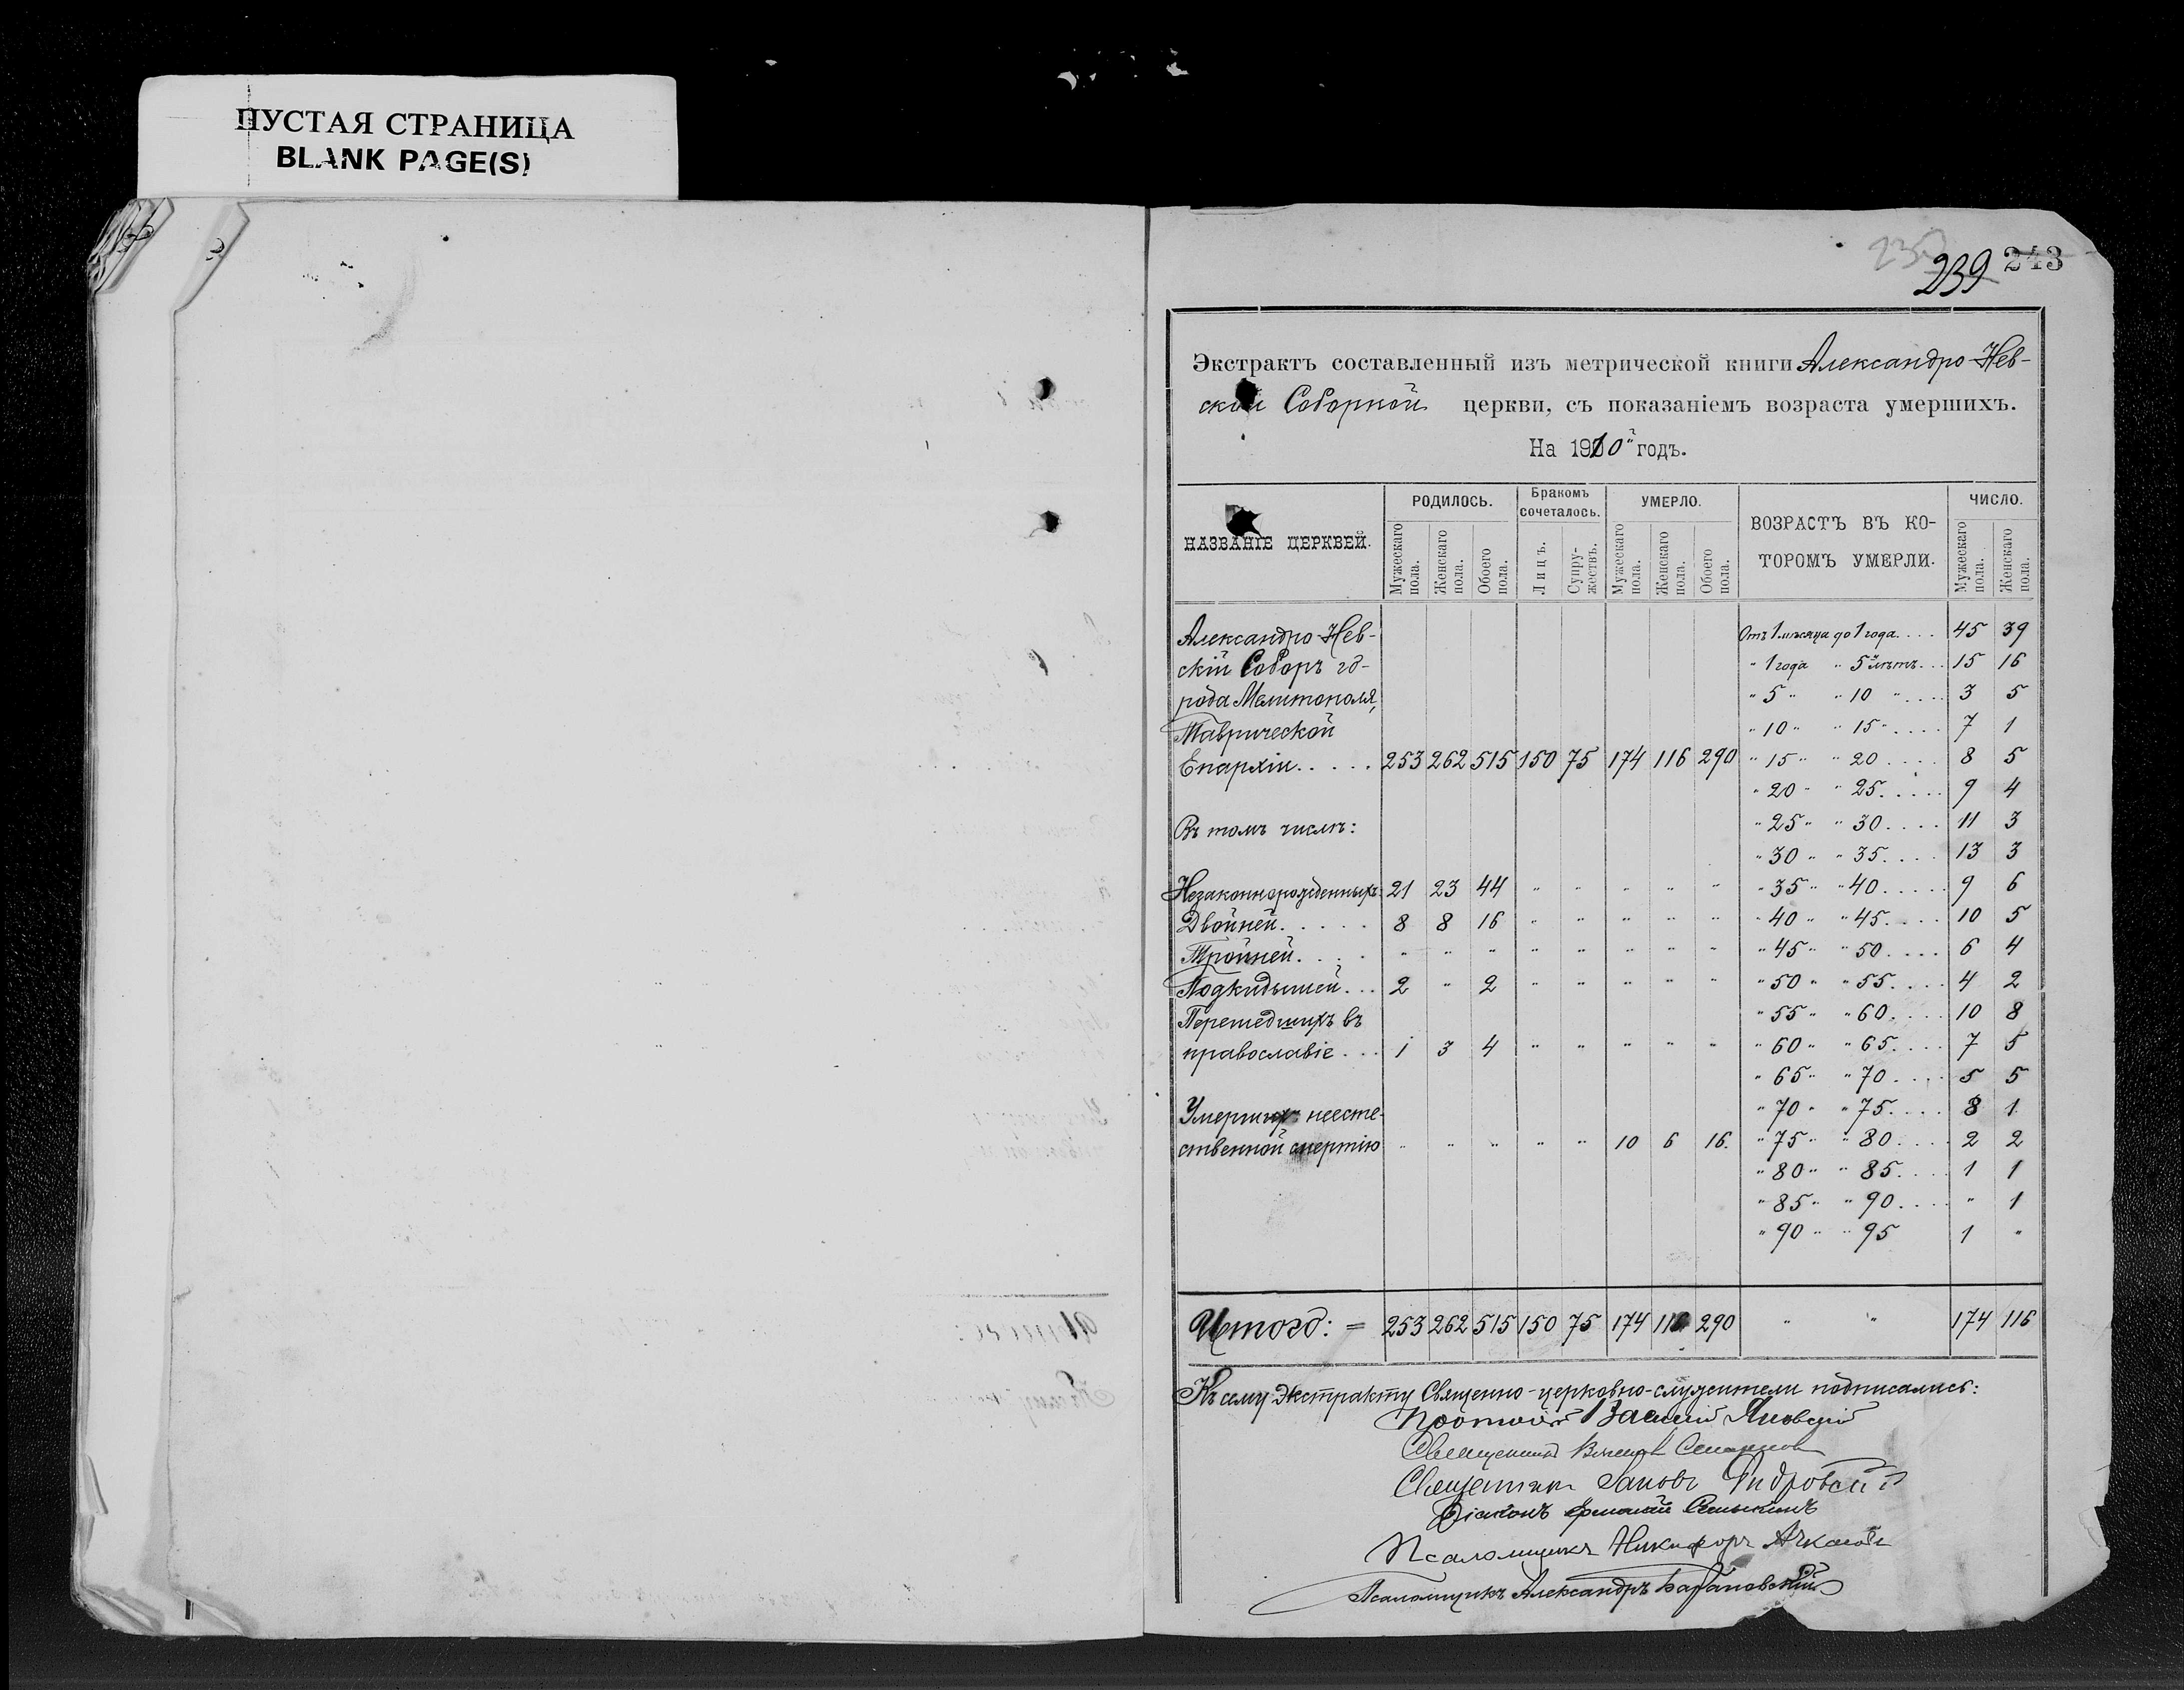 ПУСТАЯ СТРАНИЦА
BLANK PAGE(S)
239 243
Экстрактъ составленный изъ метрической книги Александро-Нев-
ской Соборной церкви, съ показаніемъ возраста умершихъ.
На 1910й годъ.
НАЗВАНІЕ ЦЕРКВЕЙ. РОДИЛОСЬ. Бракомъ сочеталось. УМЕРЛО. ВОЗРАСТЪ ВЪ КО-ТОРОМЪ УМЕРЛИ. ЧИСЛО.
Мужескаго пола. Женскаго пола. Обоего пола. Лицъ. Супружествъ. Мужескаго пола. Женскаго пола. Обоего пола. Мужескаго пола. Женскаго пола.
Александро-Нев-
скій Соборъ го-
рода Мелитополя,
Таврической
Епархіи..... 253 262 515 150 75 174 116 290
Въ томъ числѣ:
Незаконнорожденныхъ 21 23 44 " " " " "
Двойней..... 8 8 16 " " " " "
Тройней.... " " " " " " " "
Подкидышей... 2 " 2 " " " " "
Перешедшихъ въ
православіе... 1 3 4 " " " " "
Умершихъ неесте-
ственной смертію " " " " " 10 6 16.
Отъ 1 мѣсяца до 1 года.... 45 39
" 1 года " 5 лѣтъ... 15 16
" 5 " " 10 " .... 3 5
" 10 " " 15 " .... 7 1
" 15 " " 20 .... 8 5
" 20 " " 25..... 9 4
" 25 " " 30.... 11 3
" 30 " " 35.... 13 3
" 35 " " 40..... 9 6
" 40 " " 45.... 10 5
" 45 " " 50.... 6 4
" 50 " " 55.... 4 2
" 55 " " 60.... 10 8
" 60 " " 65.... 7 5
" 65 " " 70.... 5 5
" 70 " " 75.... 8 1
" 75 " " 80.... 2 2
" 80 " " 85.... 1 1
" 85 " " 90.... " 1
" 90 " " 95 1 "
Итого: = 253 262 515 150 75 174 116 290 " " 174 116
Къ сему Экстракту Священно-церковно-служители подписались:
Василій
Священникъ
Священникъ Іаковъ
Діаконъ
Псаломщикъ Никифоръ
Псаломщикъ Александръ Барановскій